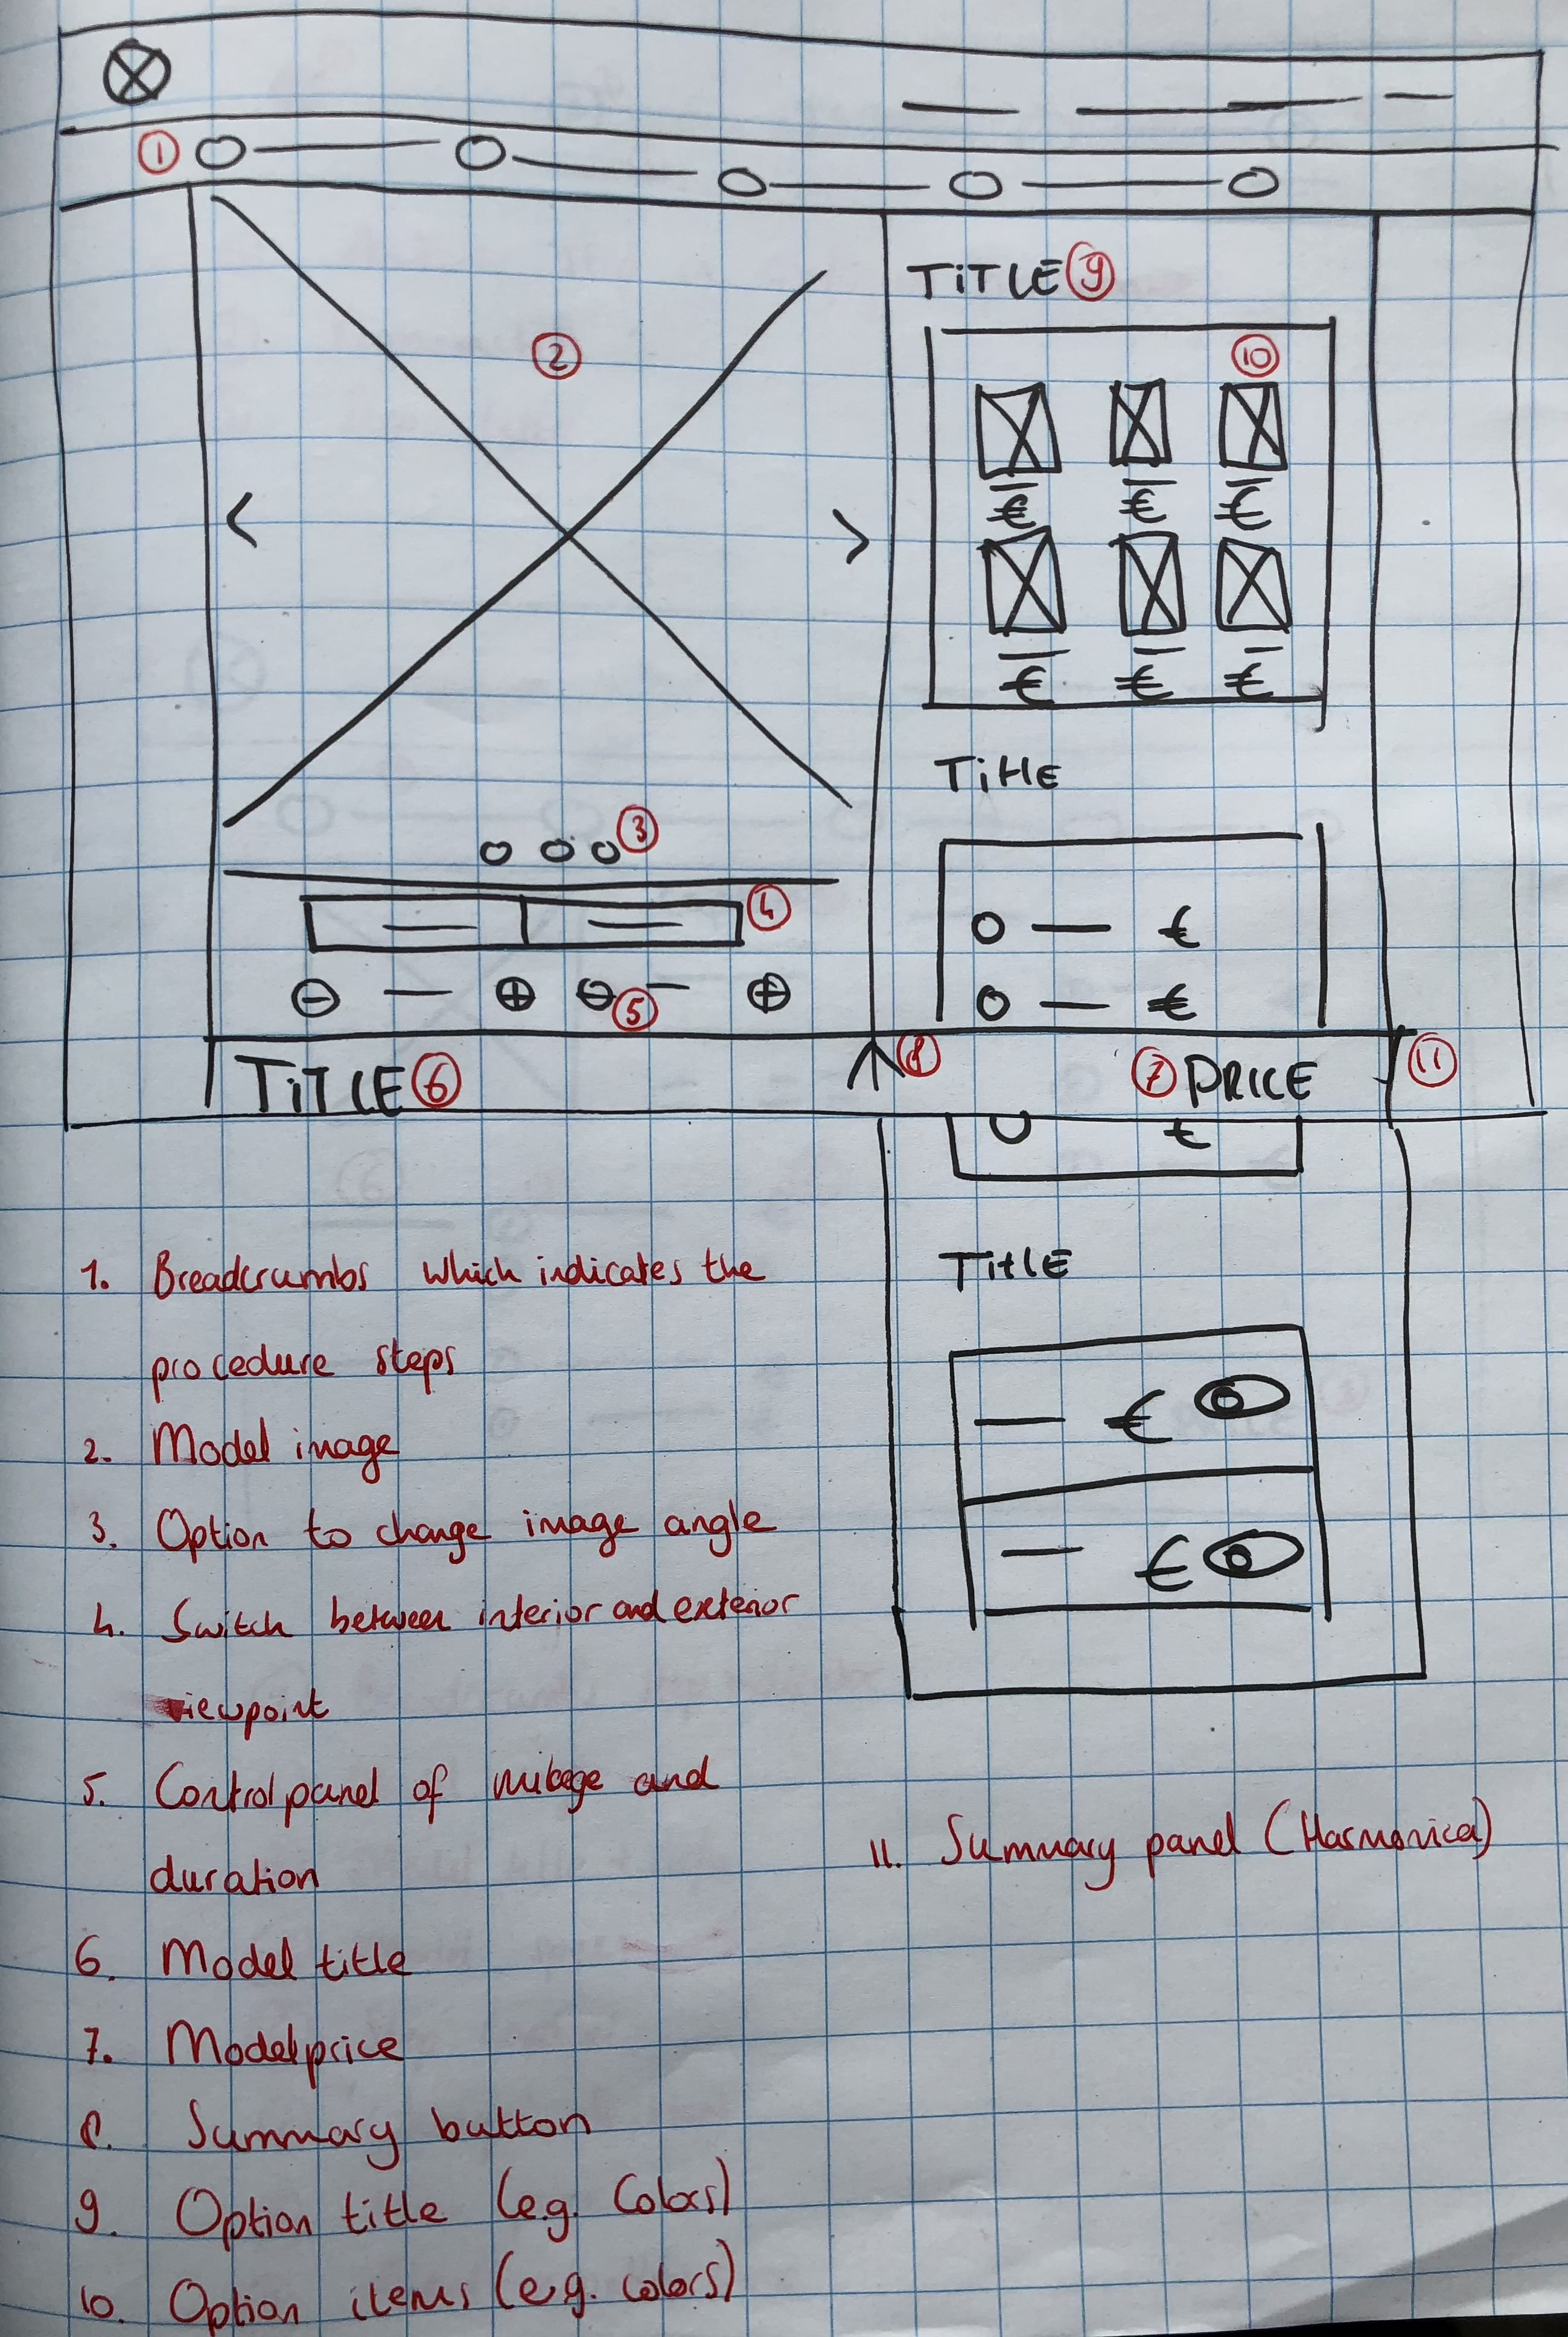 1
TiTLE 9
2
10
€ € €
€ € €
TitlE
3
4
€
5
€
TiTLE 6
8
7 PRICE
11
€
TitlE
€
€
1. Breadcrumbs which indicates the
procedure steps
2. Model image
3. Option to change image angle
4. Switch between interior and exterior
viewpoint
5. Control panel of milage and
duration
6. Model title
7. Model price
8. Summary button
9. Option title (e.g. Colors)
10. Option items (e.g. colors)
11. Summary panel (Harmonica)